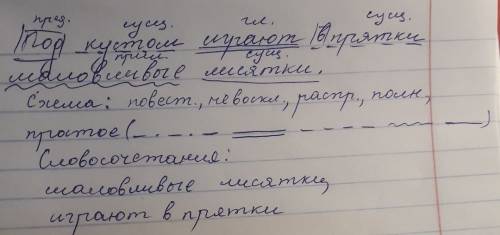 пред. сущ. гл. сущ.
Под кустом играют в прятки
прил. сущ.
шаловливые лисятки.
Схема: повест., невоскл., распр., полн.,
простое (
Словосочетания:
шаловливые лисятки,
играют в прятки